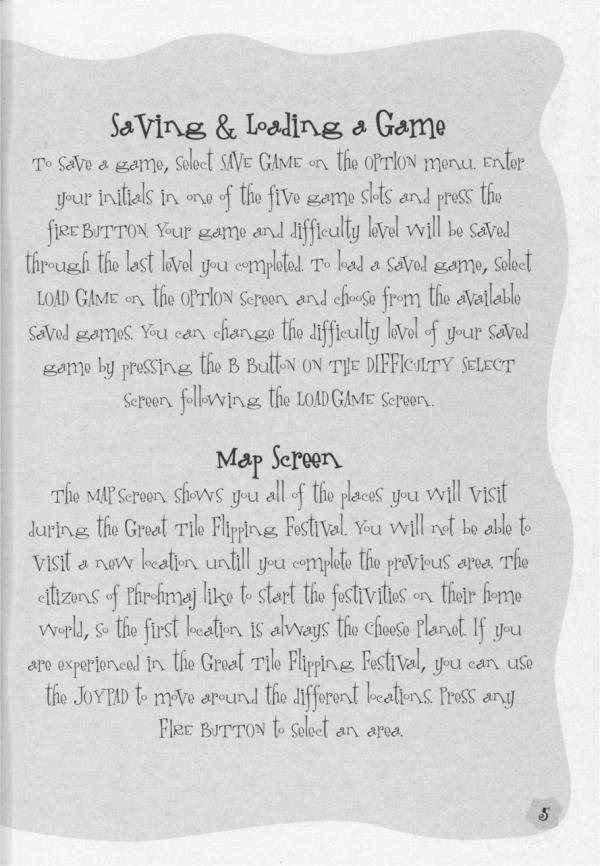 Saving & Loading a Game
To save a game, select SAVE GAME on the OPTION menu. Enter
your initials in one of the five game slots and press the
FIRE BUTTON. Your game and difficulty level will be saved
through the last level you completed. To load a saved game, select
LOAD GAME on the OPTION screen and choose from the available
saved games. You can change the difficulty level of your saved
game by pressing the B Button ON THE DIFFICULTY SELECT
screen following the LOAD GAME screen.
Map Screen
The MAP screen shows you all of the places you will visit
during the Great Tile Flipping Festival. You will not be able to
visit a new location untill you complete the previous area. The
citizens of Phrohmaj like to start the festivities on their home
world, so the first location is always the Cheese Planet. If you
are experienced in the Great Tile Flipping Festival, you can use
the JOYPAD to move around the different locations. Press any
FIRE BUTTON to select an area.
5